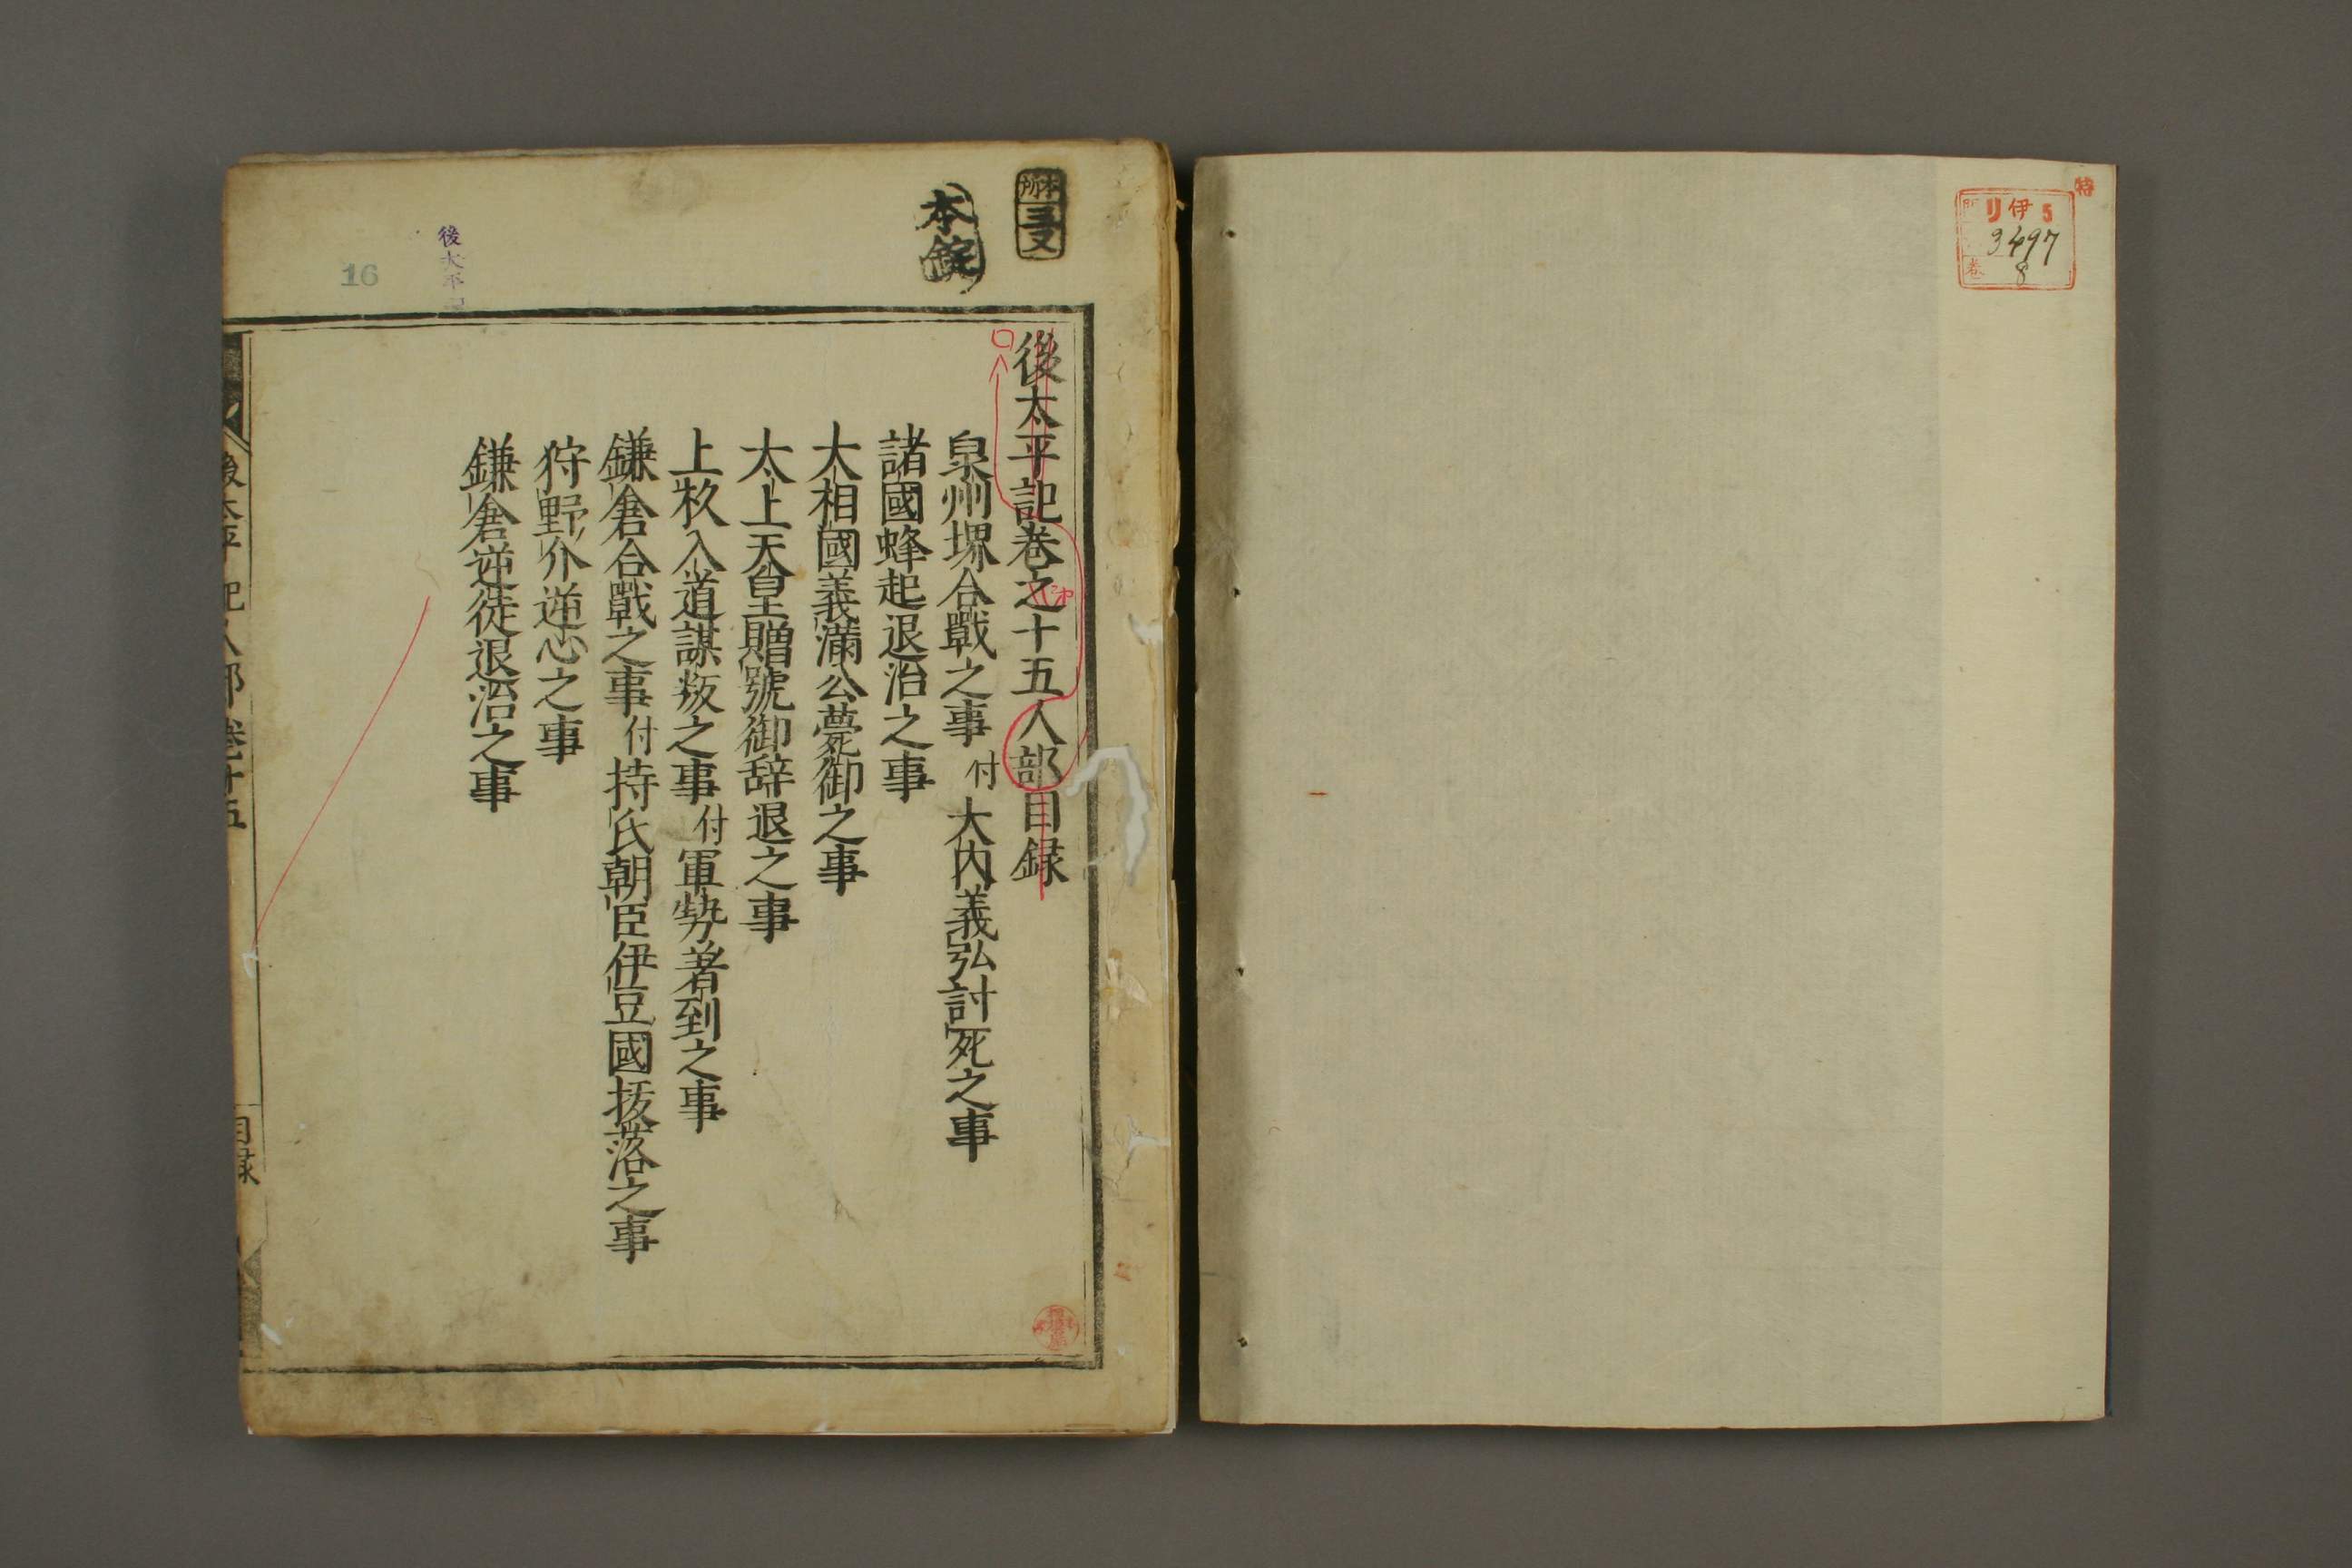 特
リ伊5
3497
卷 8
本錠
後太平記
16
後太平記卷之十五人部目録
泉州堺合戰之事付大内義弘討死之事
諸國蜂起退治之事
大相國義満公薨御之事
太上天皇贈號御辞退之事
上杦入道謀叛之事付軍勢著到之事
鎌倉合戰之事付持氏朝臣伊豆國拔落之事
狩野介逆心之事
鎌倉逆徒退治之事
後太平記人部卷十五
目録